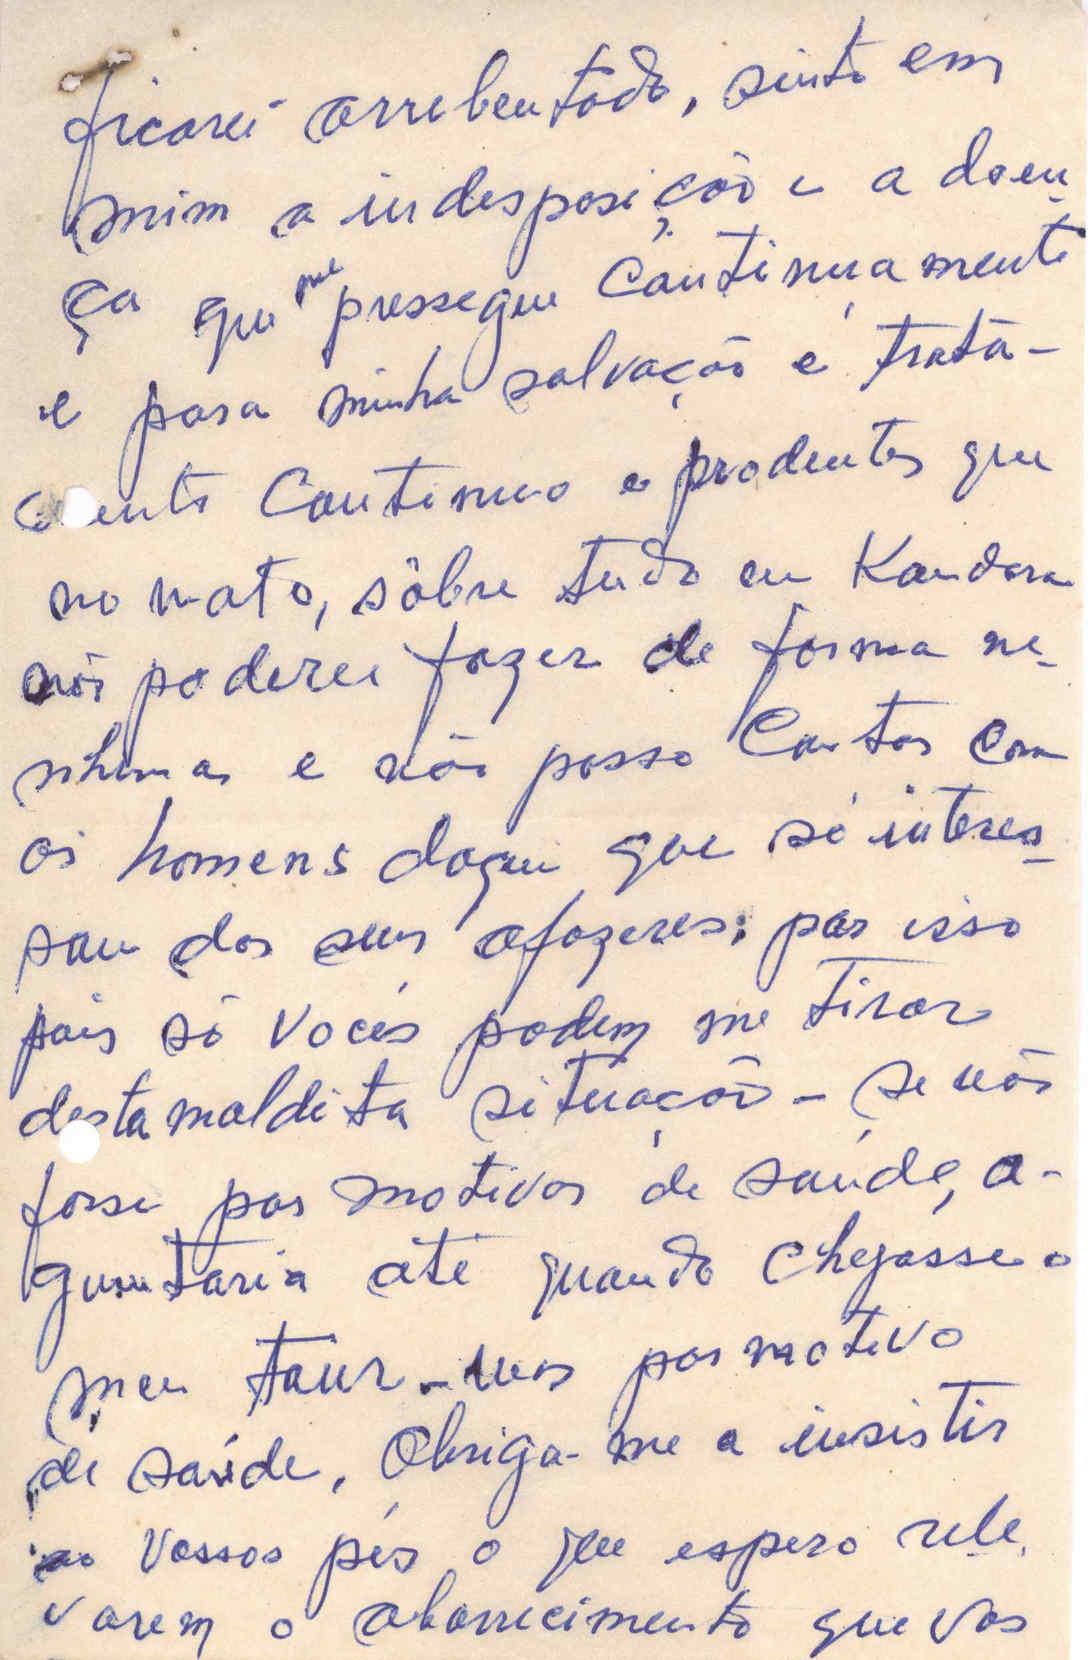 ficarei arrebentado, sinto em
mim a indesposição e a doen-
ça que me pressegue Continuamente
e para minha salvação é trata-
mento Continuo e prodentes que
no mato, sôbre tudo em Kandara
não poderei fazer de forma ne-
nhuma e não posso Contar com
os homens daqui que só interes-
sam dos seus afazeres; por isso
pais só vocês podem me tirar
desta maldita situação - se não
fosse por motivos de saúde, a-
guentaria até quando chegasse o
meu tour - mas por motivo
de saúde, Obriga-me a insistir
ao Vossos pés o que espero rele
varem o aborrecimento que vos